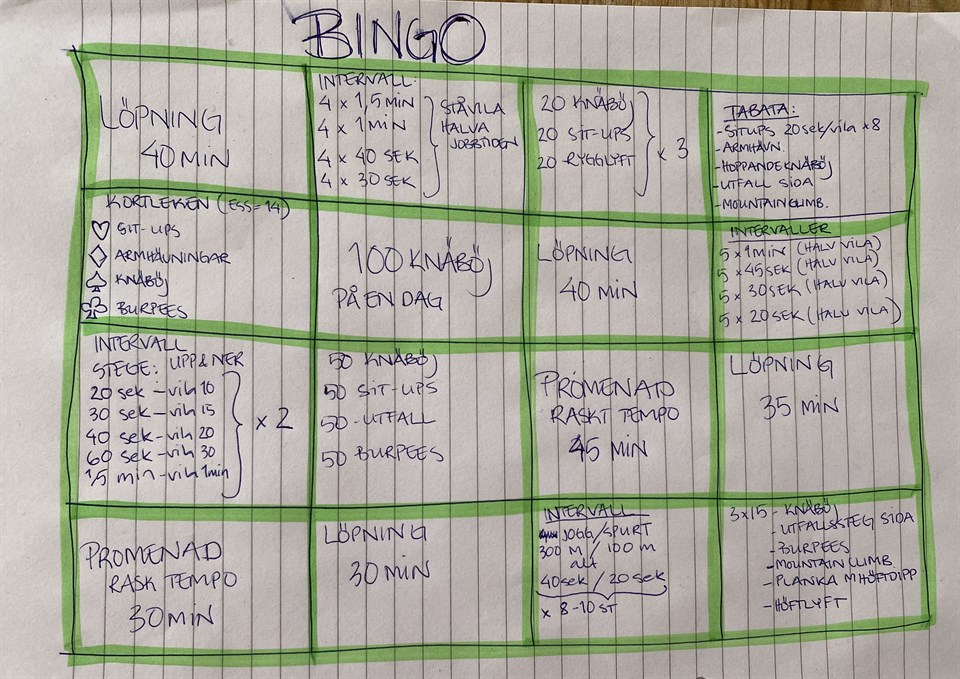 BINGO
LÖPNING
40 MIN
INTERVALL:
4 x 1,5 MIN
4 x 1 MIN
4 x 40 SEK
4 x 30 SEK
STÅVILA
HALVA
JOBBTIDEN
20 KNÄBÖJ
20 SIT-UPS
20 RYGGLYFT
x 3
TABATA:
-SITUPS 20sek/vila x8
-ARMHÄVN.
-HOPPANDE KNÄBÖJ
-UTFALL SIDA
-MOUNTAINCLIMB.
KORTLEKEN (ESS=14)
♡ SIT-UPS
♢ ARMHÄVNINGAR
♤ KNÄBÖJ
♧ BURPEES
100 KNÄBÖJ
PÅ EN DAG
LÖPNING
40 MIN
INTERVALLER
5 x 1 MIN (HALV VILA)
5 x 45 SEK (HALV VILA)
5 x 30 SEK (HALV VILA)
5 x 20 SEK (HALV VILA)
INTERVALL
STEGE: UPP & NER
20 sek - vila 10
30 sek - vila 15
40 sek - vila 20
60 sek - vila 30
1,5 min - vila 1min
x 2
50 KNÄBÖJ
50 SIT-UPS
50 -UTFALL
50 BURPEES
PROMENAD
RASKT TEMPO
45 MIN
LÖPNING
35 MIN
PROMENAD
RASK TEMPO
30 MIN
LÖPNING
30 MIN
INTERVALL
JOGG/SPURT
300 M / 100 M
alt
40sek / 20 sek
x 8-10 ST
3x15 - KNÄBÖJ
- UTFALLSSTEG SIDA
- BURPEES
- MOUNTAIN CLIMB
- PLANKA M HÖFTDIPP
- HÖFTLYFT